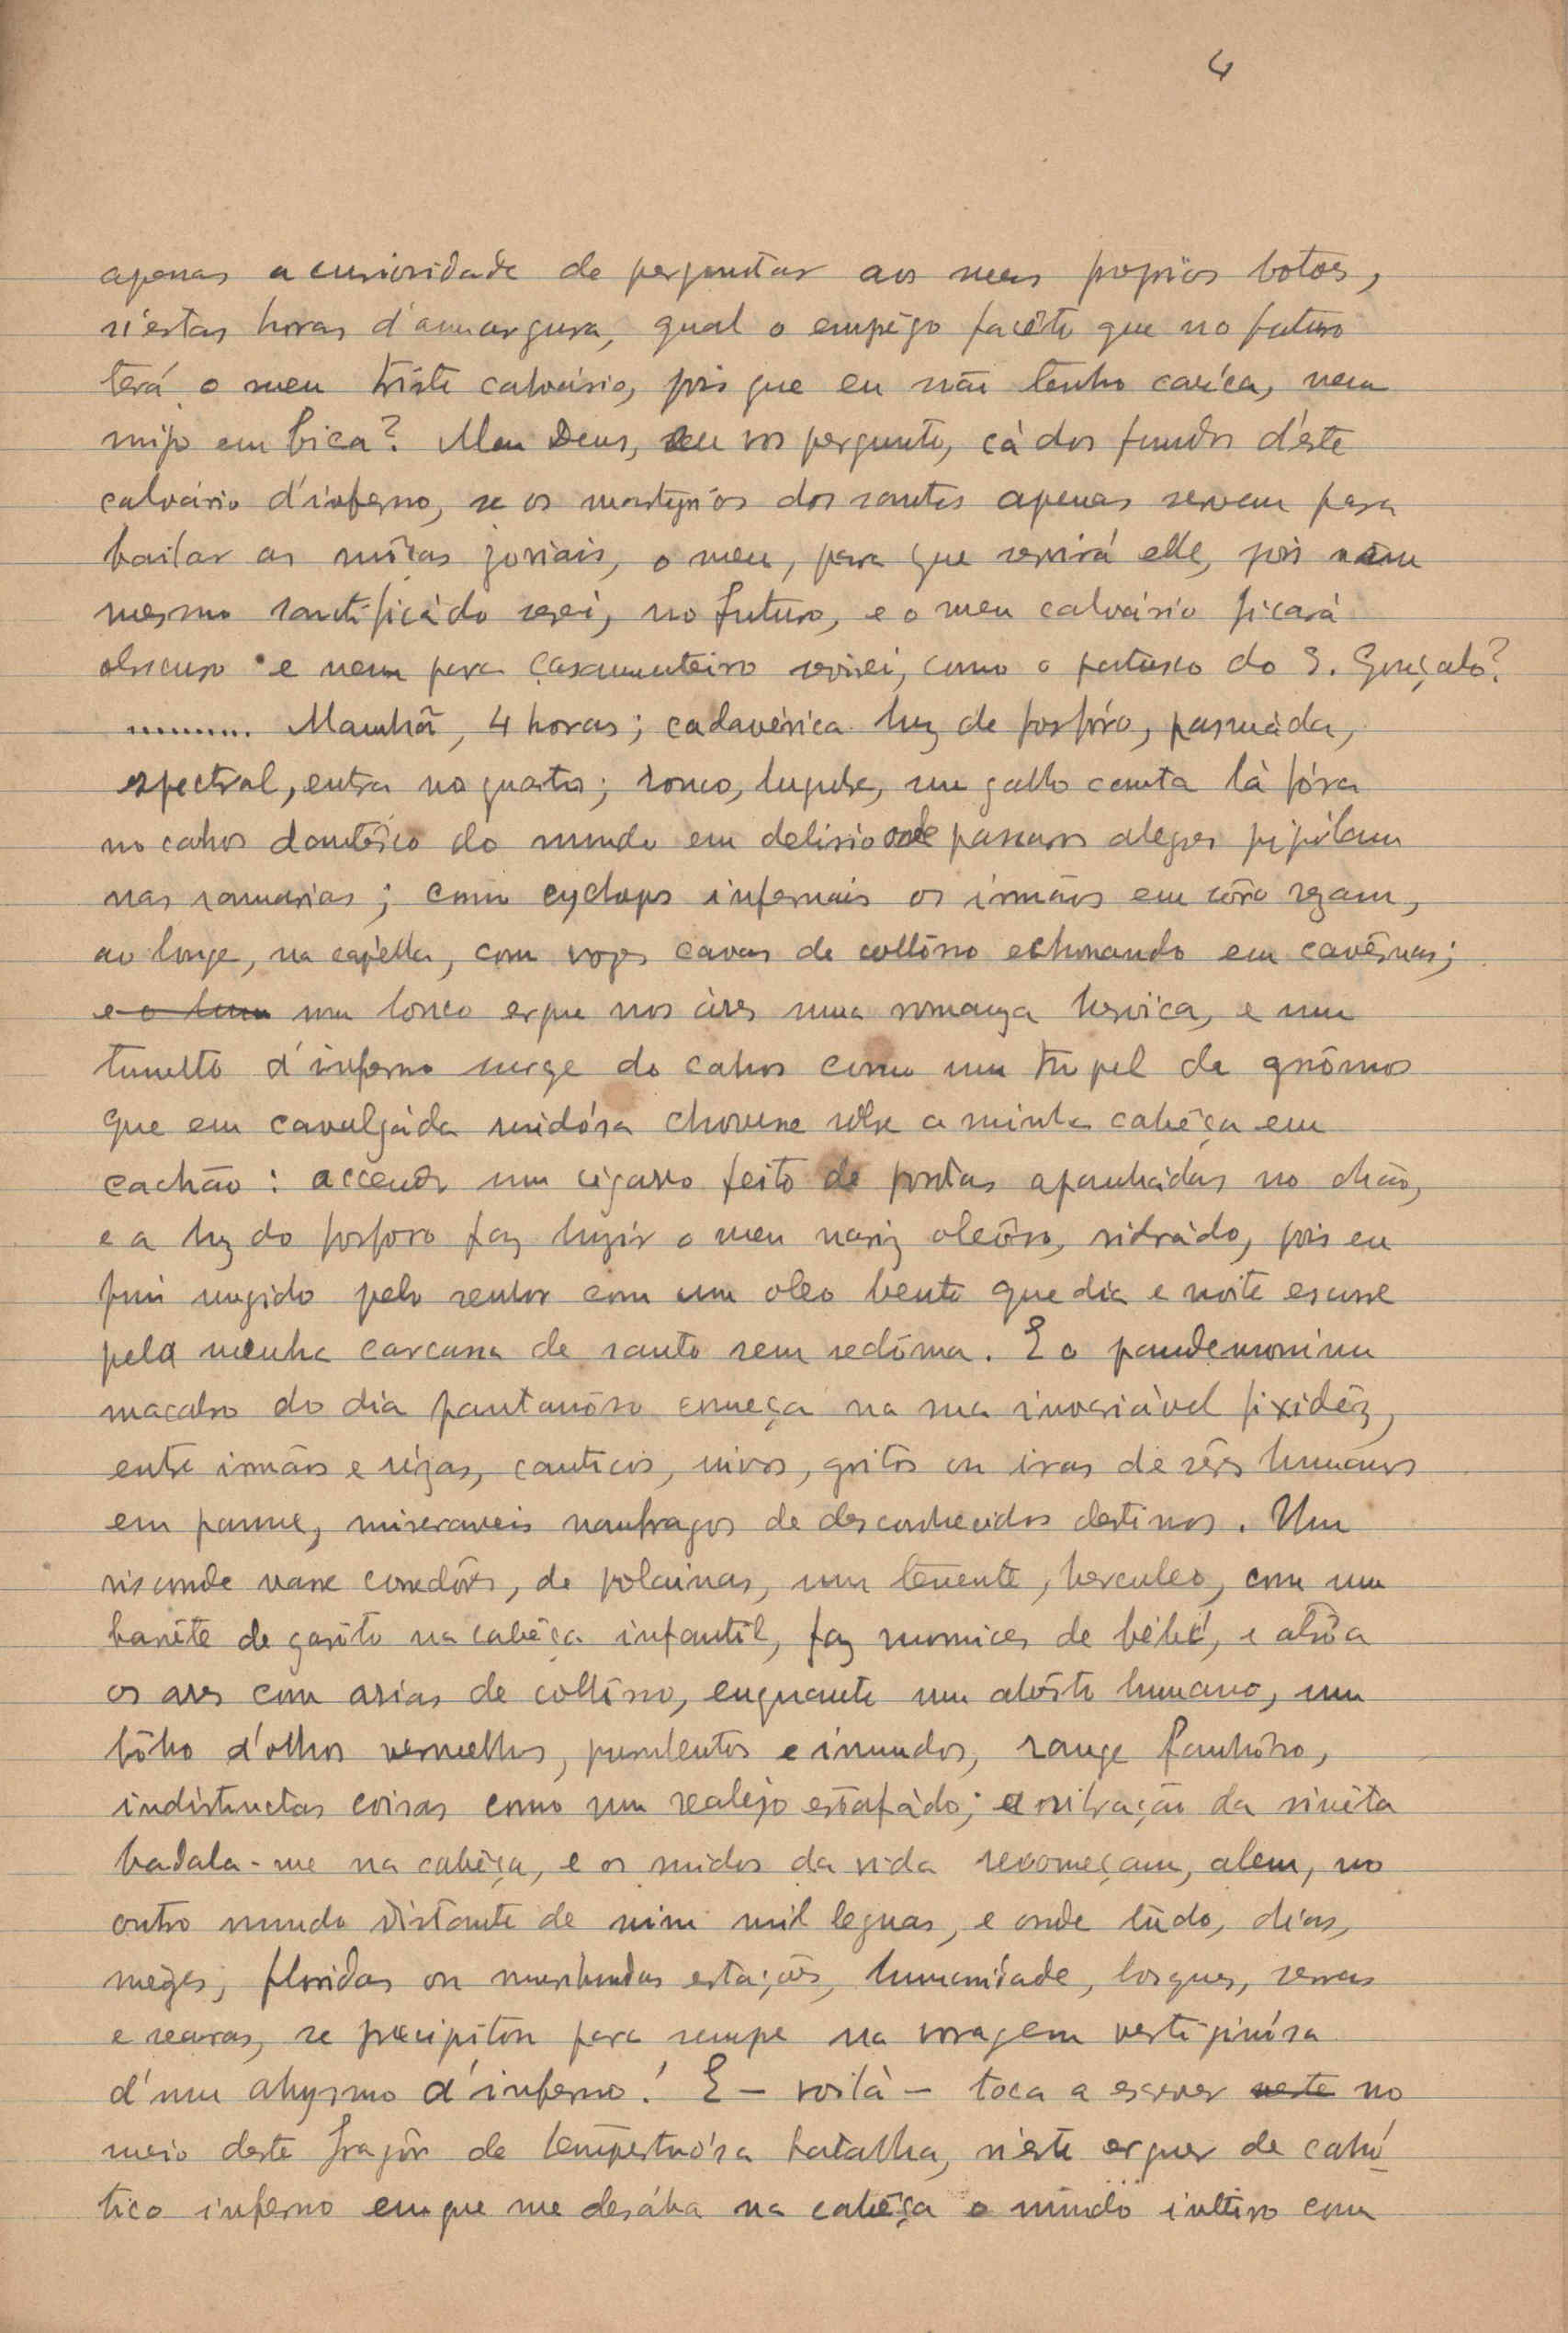 4
apenas a curiosidade de perguntar aos meus proprios botões,
n'estas horas d'amargura, qual o emprêgo facêto que no futuro
terá o meu triste calvário, pois que eu não tenho caréca, nem
mijo em bica? Meu Deus, eu vos pergunto, cá dos fundos d'éste
calvário d'inferno, se os martyrios dos santos apenas servem para
bailar as môças joviais, o meu, para que servirá elle, pois nem
mesmo santificádo serei, no futuro, e o meu calvário ficará
obscuro e nem para casamenteiro servirei, como o patusco do S. Gonçalo?
......... Manhã, 4 horas; cadavérica luz de fosfóro, pasmáda,
espectral, entra no quarto; rouco, lugubre, um gallo canta lá fóra
no cahos dantêsco do mundo em delirio onde passaros alegres pipilam
nas ramarias; como cyclopes infernais os irmãos em côro rezam,
ao longe, na capella, com vozes cavas de collôsso echoando em cavêrnas;
e o lou um louco ergue nos áres uma romanza heroica, e um
tumulto d'inferno surge do cahos como um tropel de gnômos
que em cavalgáda ruidósa chovesse sobre a minha cabêça em
cachão: accendo um cigarro feito de pontas apanhádas no chão,
e a luz do fosforo faz luzir o meu nariz oleôso, vidrádo, pois eu
fui ungido pelo senhor com um oleo bento que dia e noite escorre
pela minha carcassa de santo sem redôma. E o pandemonium
macabro do dia pantanôso começa na sua invariável fixidêz,
entre irmãos e rézas, canticos, uivos, gritos ou iras de sêres humanos
em panne, miseraveis naufragos de desconhecidos destinos. Um
visconde varre corredôres, de polainas, um tenente, herculeo, com um
barrête de garôto na cabêça infantil, faz momices de bébé, e atrôa
os ares com arias de collôsso, enquanto um abôrto humano, um
bôbo d'olhos vermelhos, purulentos e inundos, range fanhôso,
indistinctas coisas como um realejo estafádo; a vibração da sinêta
badala-me na cabêça, e os ruidos da vida recomeçam, alem, no
outro mundo distante de mim mil leguas, e onde túdo, dias,
mezes, floridas ou moribundas estações, humanidade, bosques, serras
e searas, se precipitou para sempre na voragem vertiginósa
d'um abysmo d'inferno! E – voilà – toca a escrever neste no
meio deste fragôr de tempestuósa batalha, n'este erguer de cahó
tico inferno em que me desába na cabêça o mundo inteiro com